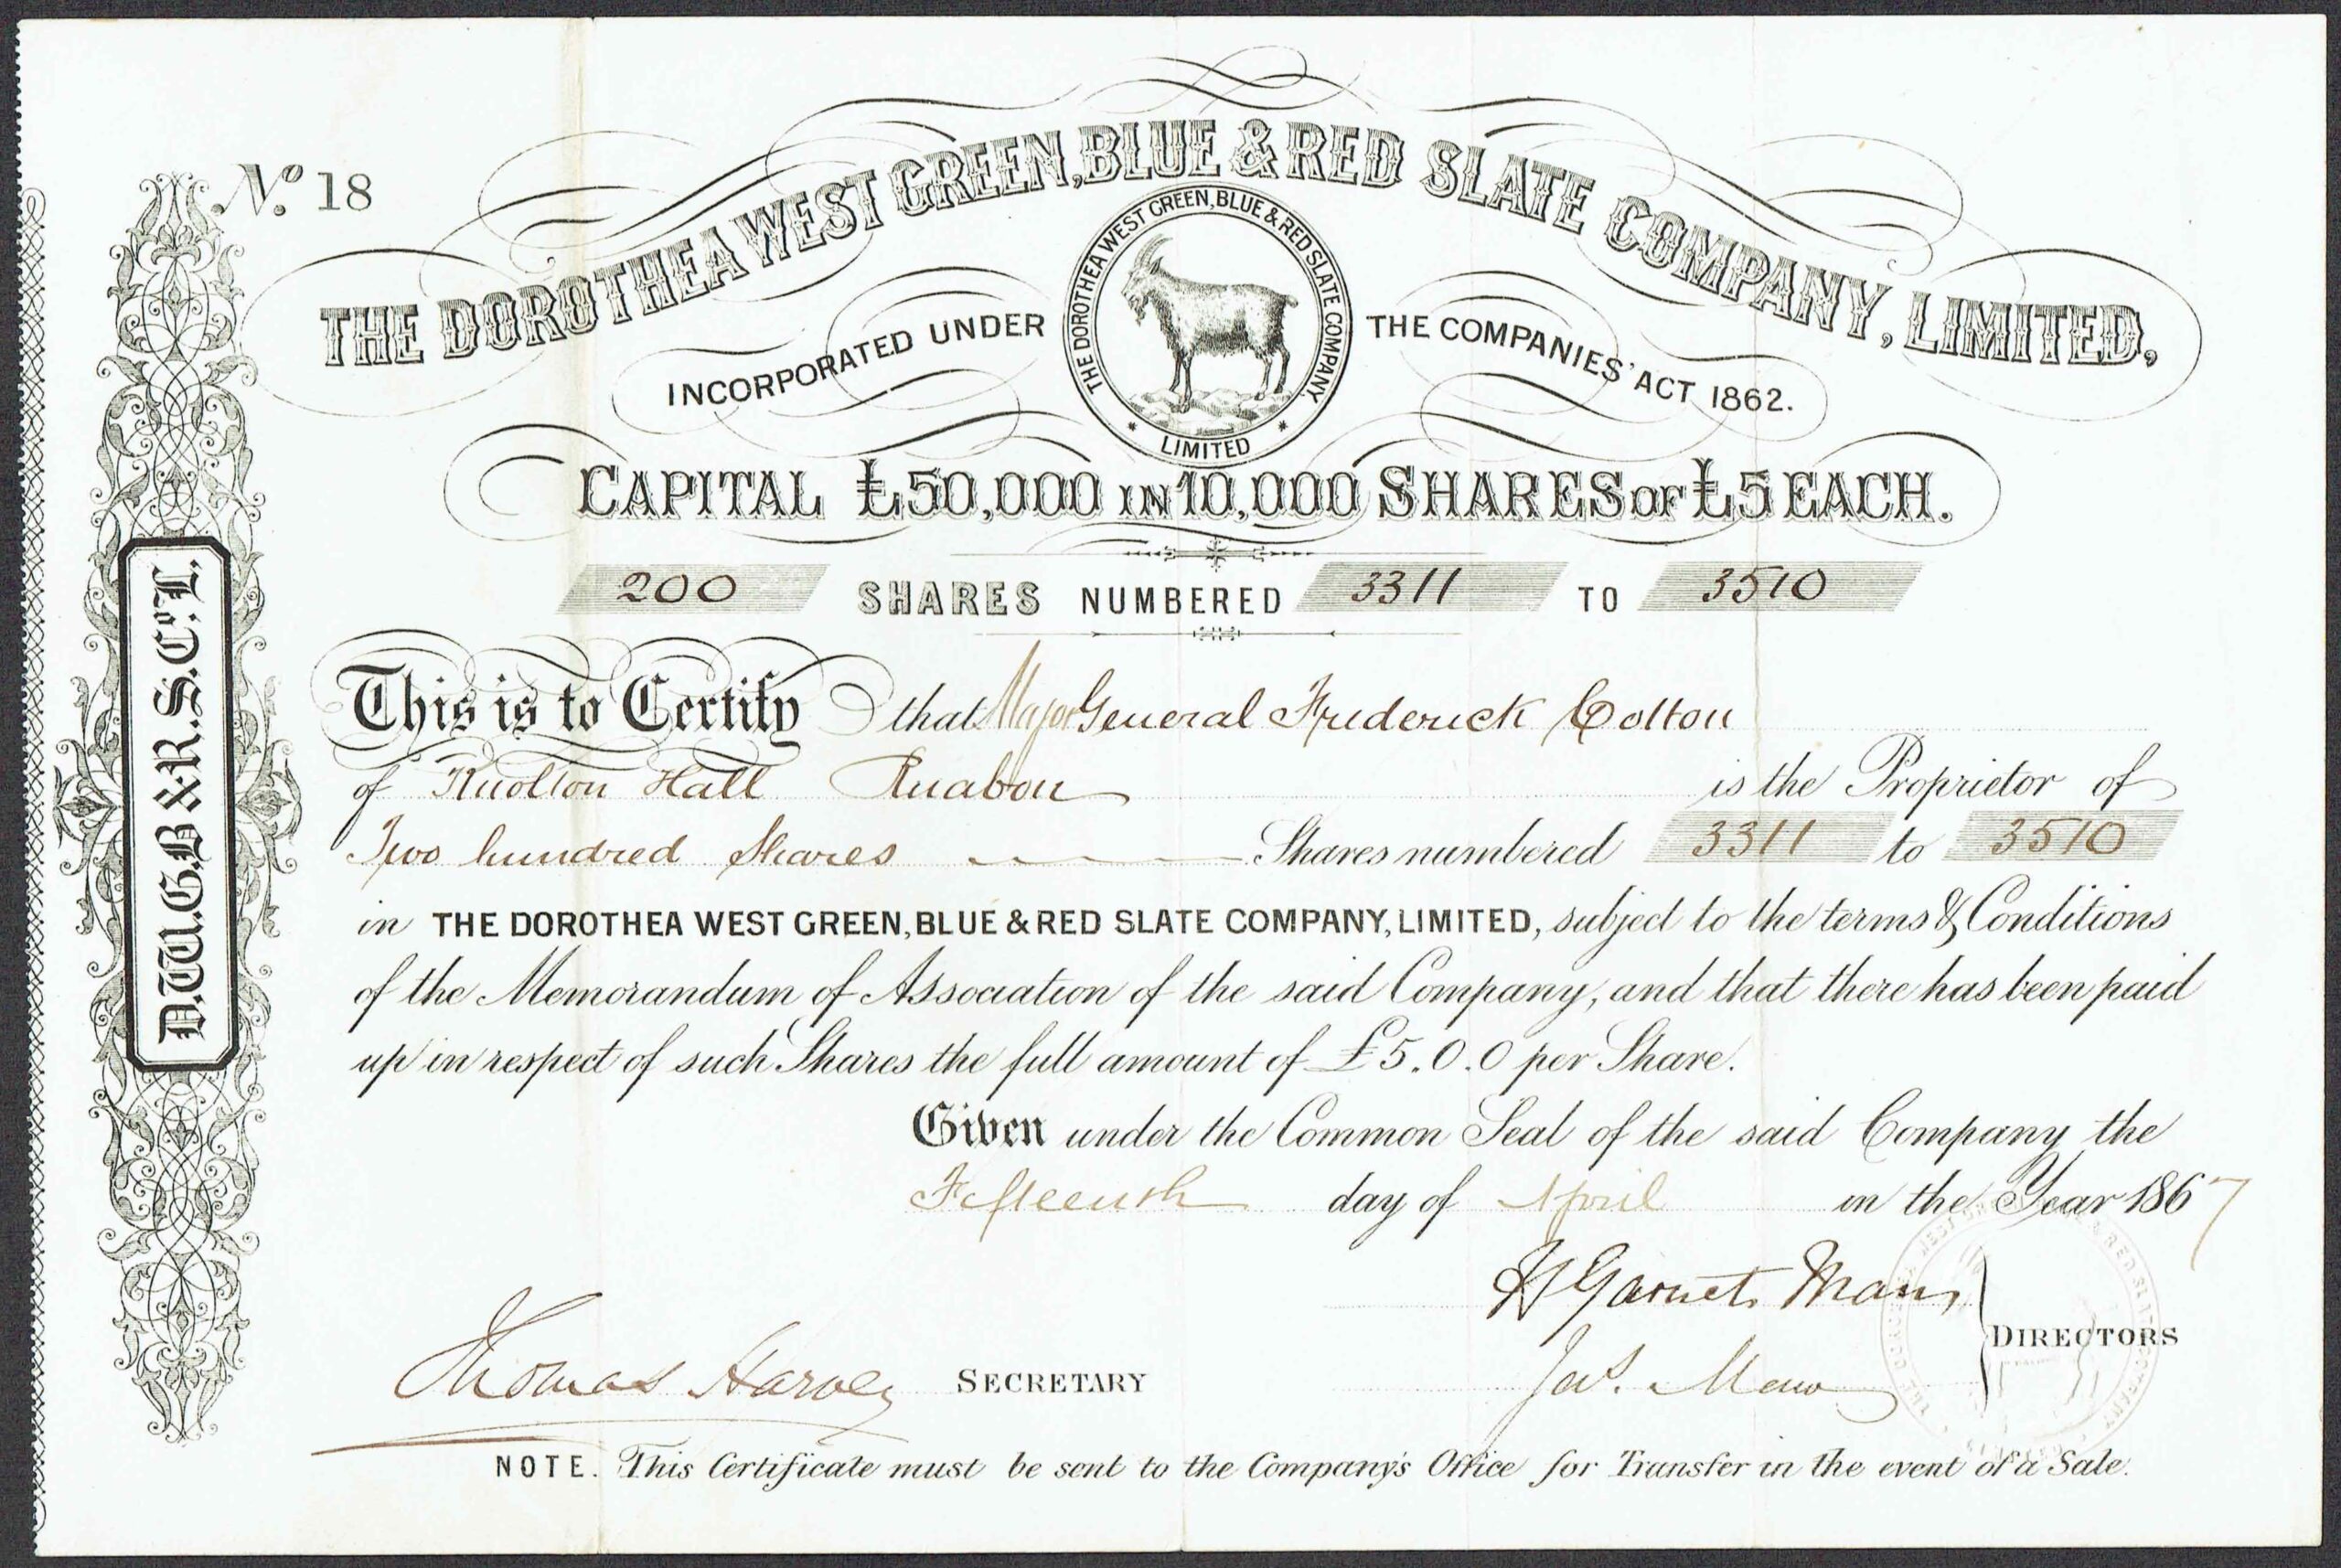 No. 18
THE DOROTHEA WEST GREEN, BLUE & RED SLATE COMPANY, LIMITED,
INCORPORATED UNDER THE COMPANIES' ACT 1862.
THE DOROTHEA WEST GREEN, BLUE & RED SLATE COMPANY.
* LIMITED *
CAPITAL £50,000 IN 10,000 SHARES OF £5 EACH.
200 SHARES NUMBERED 3311 TO 3510
This is to Certify that Major General Frederick Colton
of Knolton Hall Ruabon is the Proprietor of
Two hundred Shares Shares numbered 3311 to 3510
in THE DOROTHEA WEST GREEN, BLUE & RED SLATE COMPANY, LIMITED, subject to the terms & Conditions
of the Memorandum of Association of the said Company, and that there has been paid
up in respect of such Shares the full amount of £5.0.0 per Share.
Given under the Common Seal of the said Company the
Fifteenth day of April in the Year 1867
H Garnet Man
Jas.
DIRECTORS
Thomas Harvey SECRETARY
NOTE. This Certificate must be sent to the Company's Office for Transfer in the event of a Sale.
D.W.G.B & R.S.Co. L.